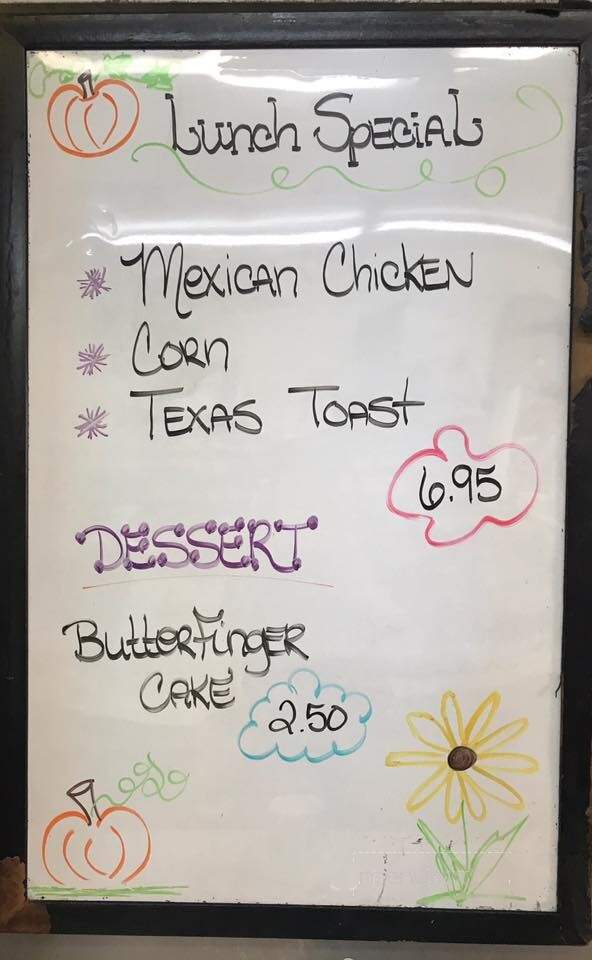 Lunch Special
Mexican Chicken
Corn
Texas Toast
6.95
DESSERT
Butterfinger
Cake
2.50